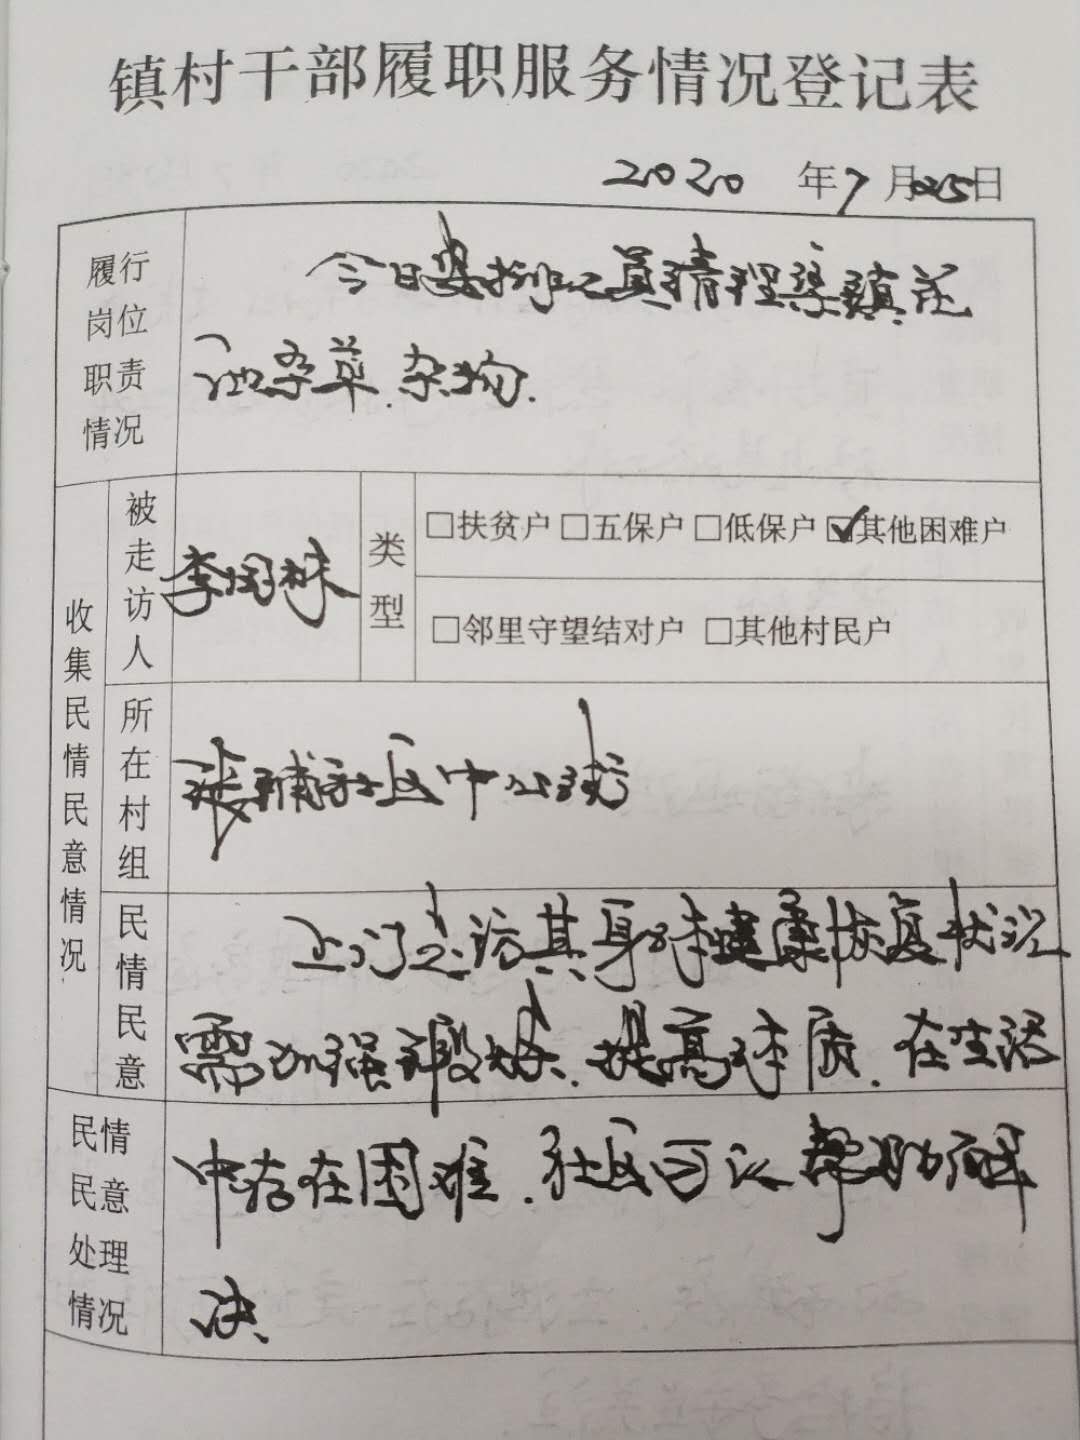 镇村干部履职服务情况登记表
2020 年7月25日
履行
岗位
职责
情况
今日安排工人员清理集镇花
池杂草.杂物.
收集民情民意情况
被走访人
李国林
类型
□扶贫户 □五保户 □低保户 ☑其他困难户
□邻里守望结对户 □其他村民户
所在村组
张铺社区中心街
民情民意
上门走访其身体健康恢复状况
需加强锻炼.提高体质.在生活
民情
民意
处理
情况
中存在困难.社区可以帮助解
决.